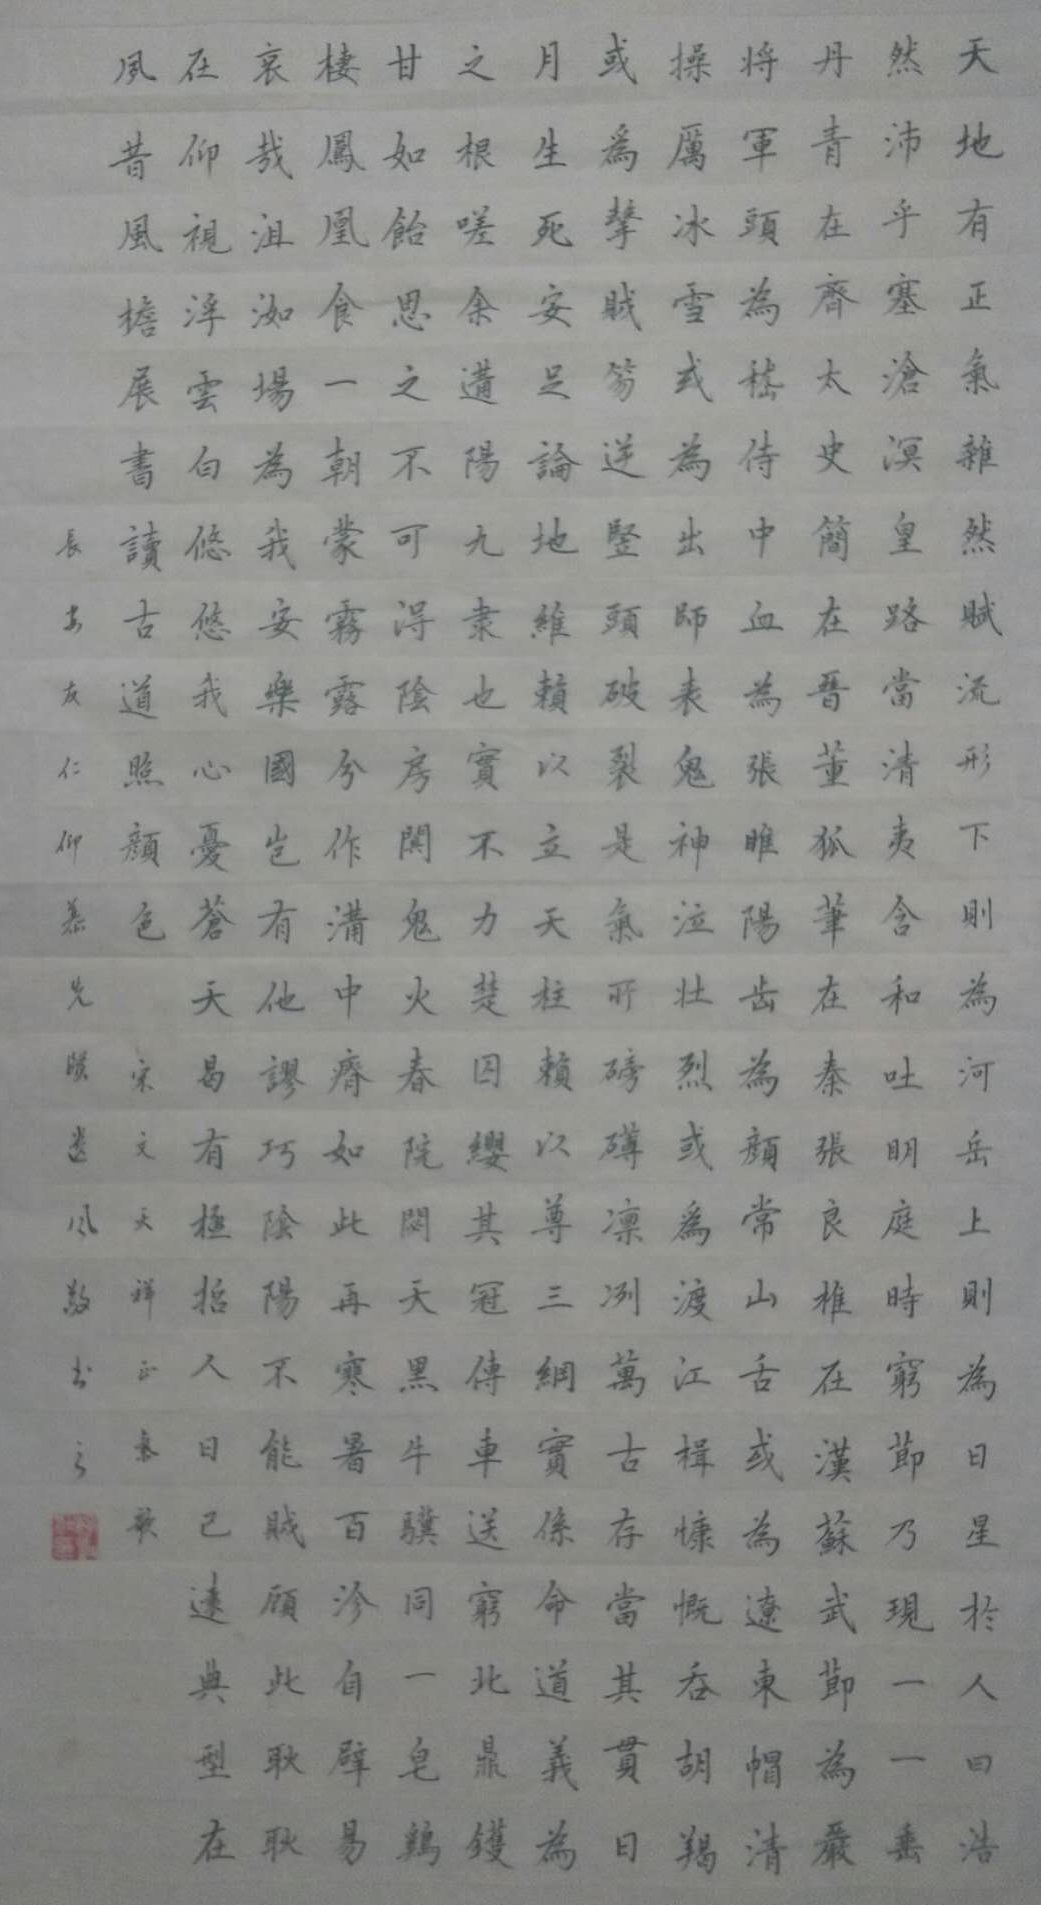 天地有正氣雜然賦流形下則為河岳上則為日星於人曰浩
然沛乎塞滄溟皇路當清夷含和吐明庭時窮節乃現一一垂
丹青在齊太史簡在晉董狐筆在秦張良椎在漢蘇武節為嚴
将軍頭為嵇侍中血為張睢陽齿為顏常山舌或為遼東帽清
操厲冰雪或為出師表鬼神泣壮烈或為渡江楫慷慨吞胡羯
或為擊賊笏逆豎頭破裂是氣所磅礴凛冽萬古存當其貫日
月生死安足論地維賴以立天柱賴以尊三綱實係命道義為
之根嗟余遘陽九隶也實不力楚囚纓其冠傳車送窮北鼎鑊
甘如飴思之不可得陰房闃鬼火春院閟天黑牛驥同一皂鷄
棲鳳凰食一朝蒙霧露兮作溝中瘠如此再寒暑百沴自辟易
哀哉沮洳場為我安樂國岂有他謬巧陰陽不能賊顧此耿耿
在仰視浮雲白悠悠我心憂蒼天曷有極哲人日已遠典型在
夙昔風檐展書讀古道照顏色 宋文天祥正氣歌
長安友仁仰慕先賢遺风敬书之